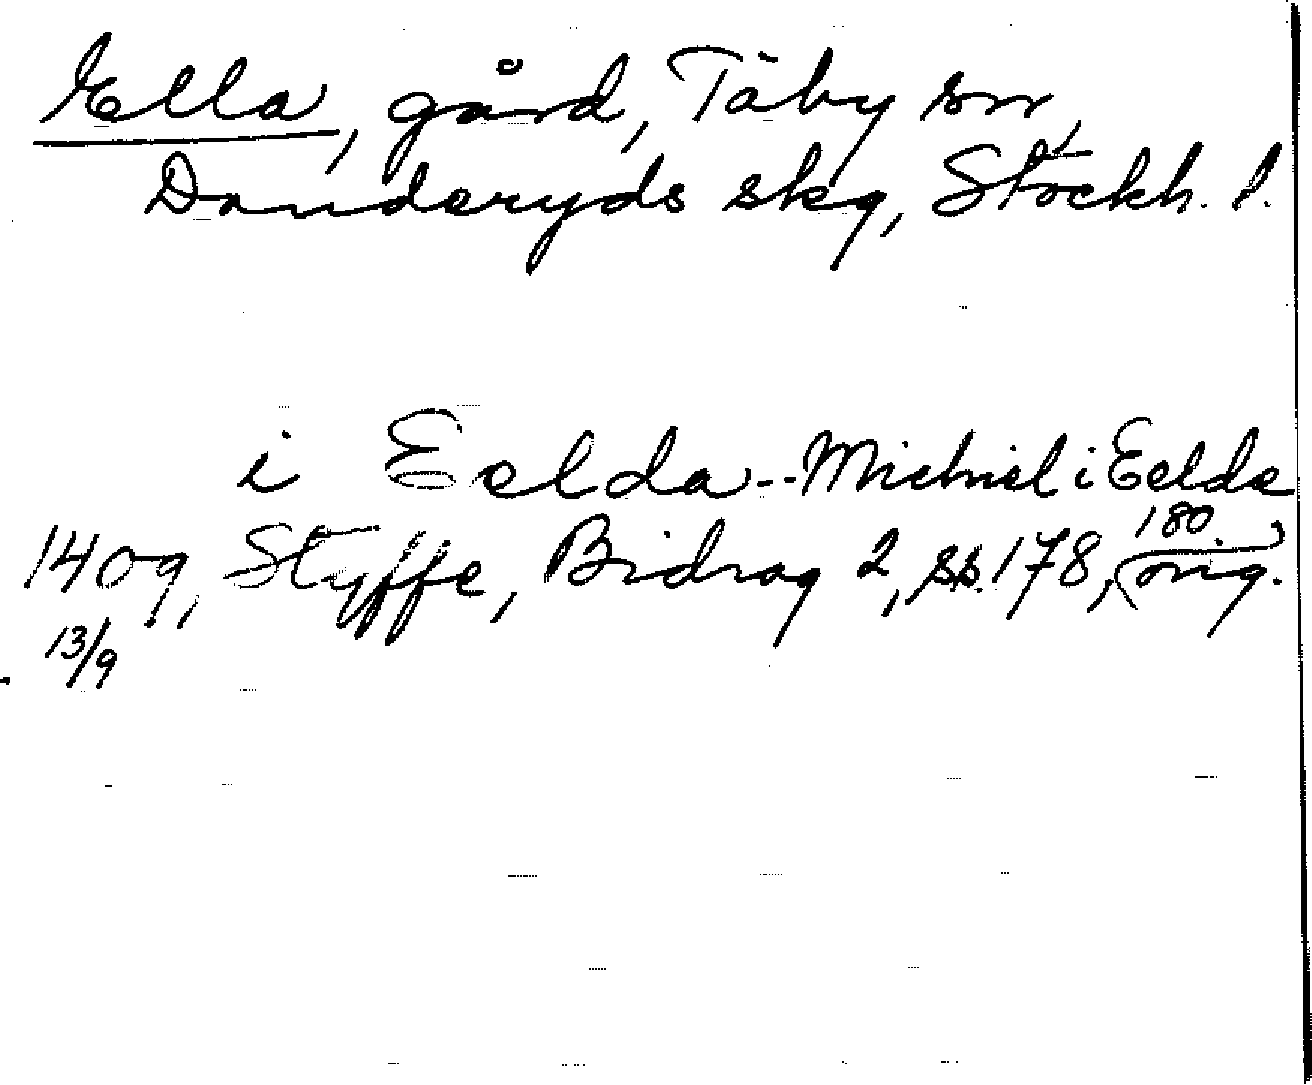 Ella, gård, Täby sn,
Danderyds skg, Stockh. l.
i Eelda--Michiel i Eelde
180.
1409, Styffe, Bidrag 2, ss. 178, (orig.)
13/9